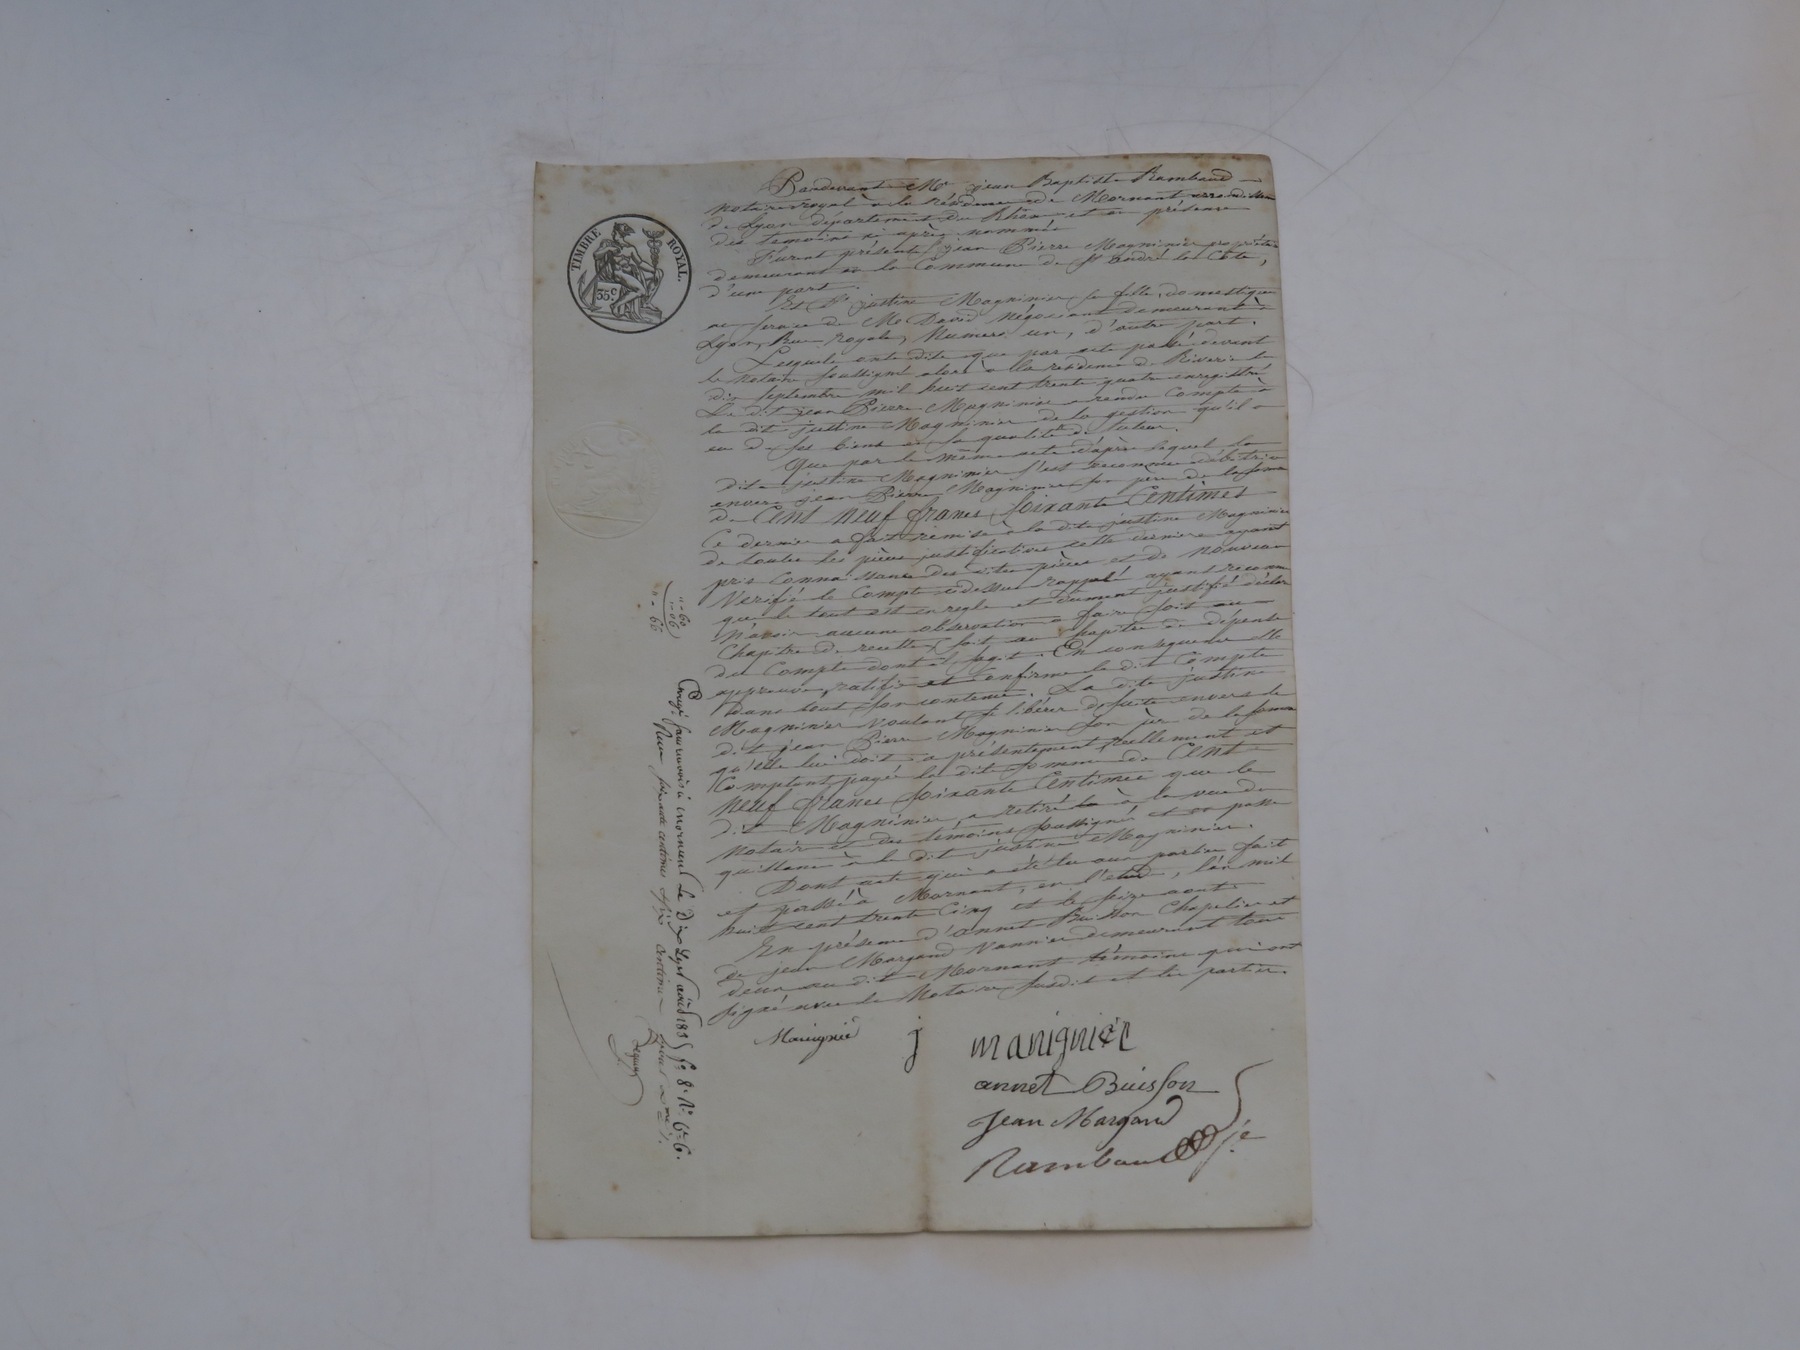 TIMBRE ROYAL.
35c
Pardevant Me jean Baptiste Rambaud
notaire royal à la résidence de Mornant arrondissem
de Lyon département du Rhône et en présence
des temoins ci après nommés
Furent présents jean Pierre Magninier propriétaire
demeurant en la Commune de St andré la Côte,
d'une part.
Et Dlle justine Magninier sa fille, domestique
au service de Mr David Négociant demeurant à
Lyon, Rue royale, Numéro un, d'autre part.
Lesquels ont dit que par acte passé devant
le Notaire soussigné alors à la résidence de Riverie le
dix septembre mil huit cent trente quatre enregistré
Le dit jean Pierre Magninier a rendu Compte à
la dite justine Magninier de la gestion qu'il a
eu de ses biens en sa qualité de tuteur.
Que par le même acte d'après lequel la
dite justine Magninier s'est reconnue débitrice
envers jean Pierre Magninier son père de la somme
de Cent neuf francs soixante Centimes
Ce dernier a fait remise à la dite justine Magninier
de toutes les pièces justificatives cette dernière ayant
pris Connaissance des dites pièces et de nouveau
Vérifié le Compte cidessus rappelé ayant reconnu
que le tout est en regle et dument justifié déclare
n'avoir aucune observation à faire soit au
Chapitre de recette, soit au chapitre de dépense
du Compte dont il s'agit. En conséquence elle
approuve, ratifie et confirme le dit Compte
dans tout son contenu. La dite justine
Magninier voulant se libérer de suite envers le
dit jean Pierre Magninier son père de la somme
qu'elle lui doit a présentement réellement et
Comptant payé la dite somme de Cent
neuf francs soixante Centimes que le
dit Magninier, a retiré à la vue du
Notaire et des témoins soussignés et en passe
quittance à la dite justine Magninier.
Dont acte qui a été lu aux parties fait
et passé à Mornant, en l'etude, l'an mil
huit cent trente Cinq et le seize aout
En présence d'annet Buisson Chapelier et
de jean Margand Vannier demeurant tous
deux au dit Mornant témoins qui ont
signé avec le Notaire susdit et les parties.
Manignié j manignièr
annet Buisson
Jean Margand
Rambaud
60
06
66
Le Dix Sept août 1835 fo 8
soixante centimes
centimes